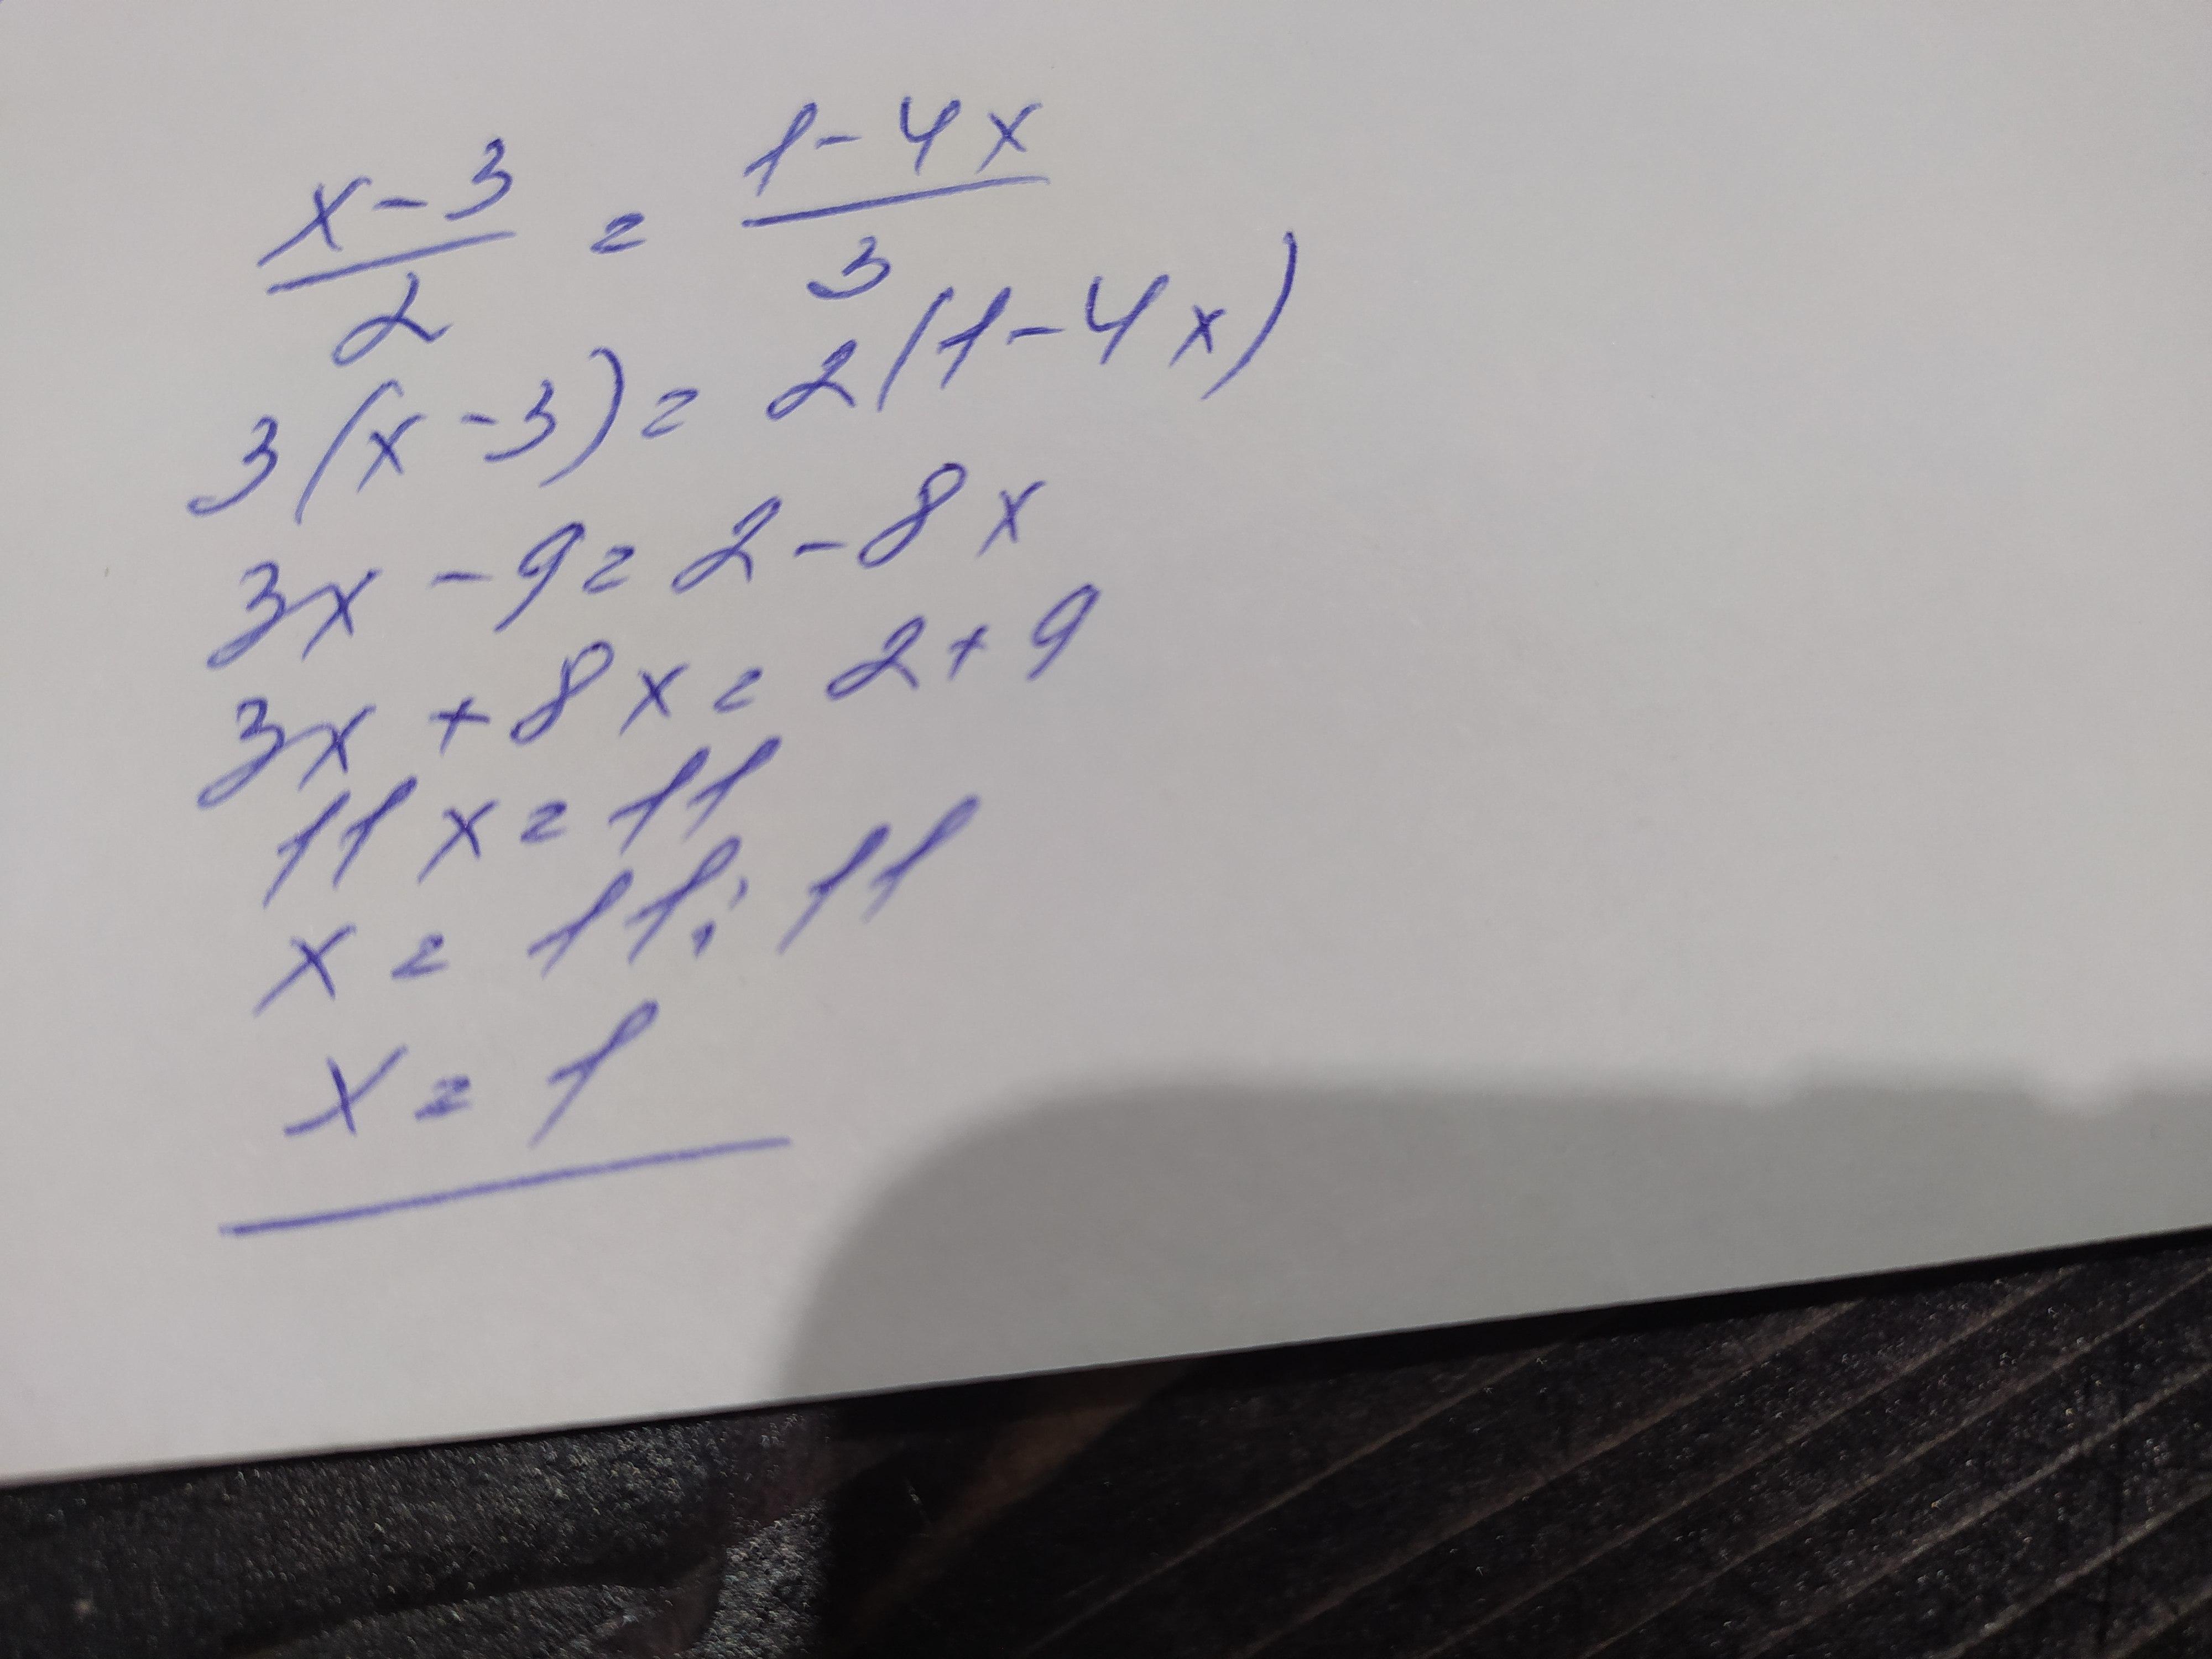 x-3/2 = 1-4x/3
3(x-3) = 2(1-4x)
3x-9 = 2-8x
3x+8x = 2+9
11x = 11
x = 11:11
x = 1